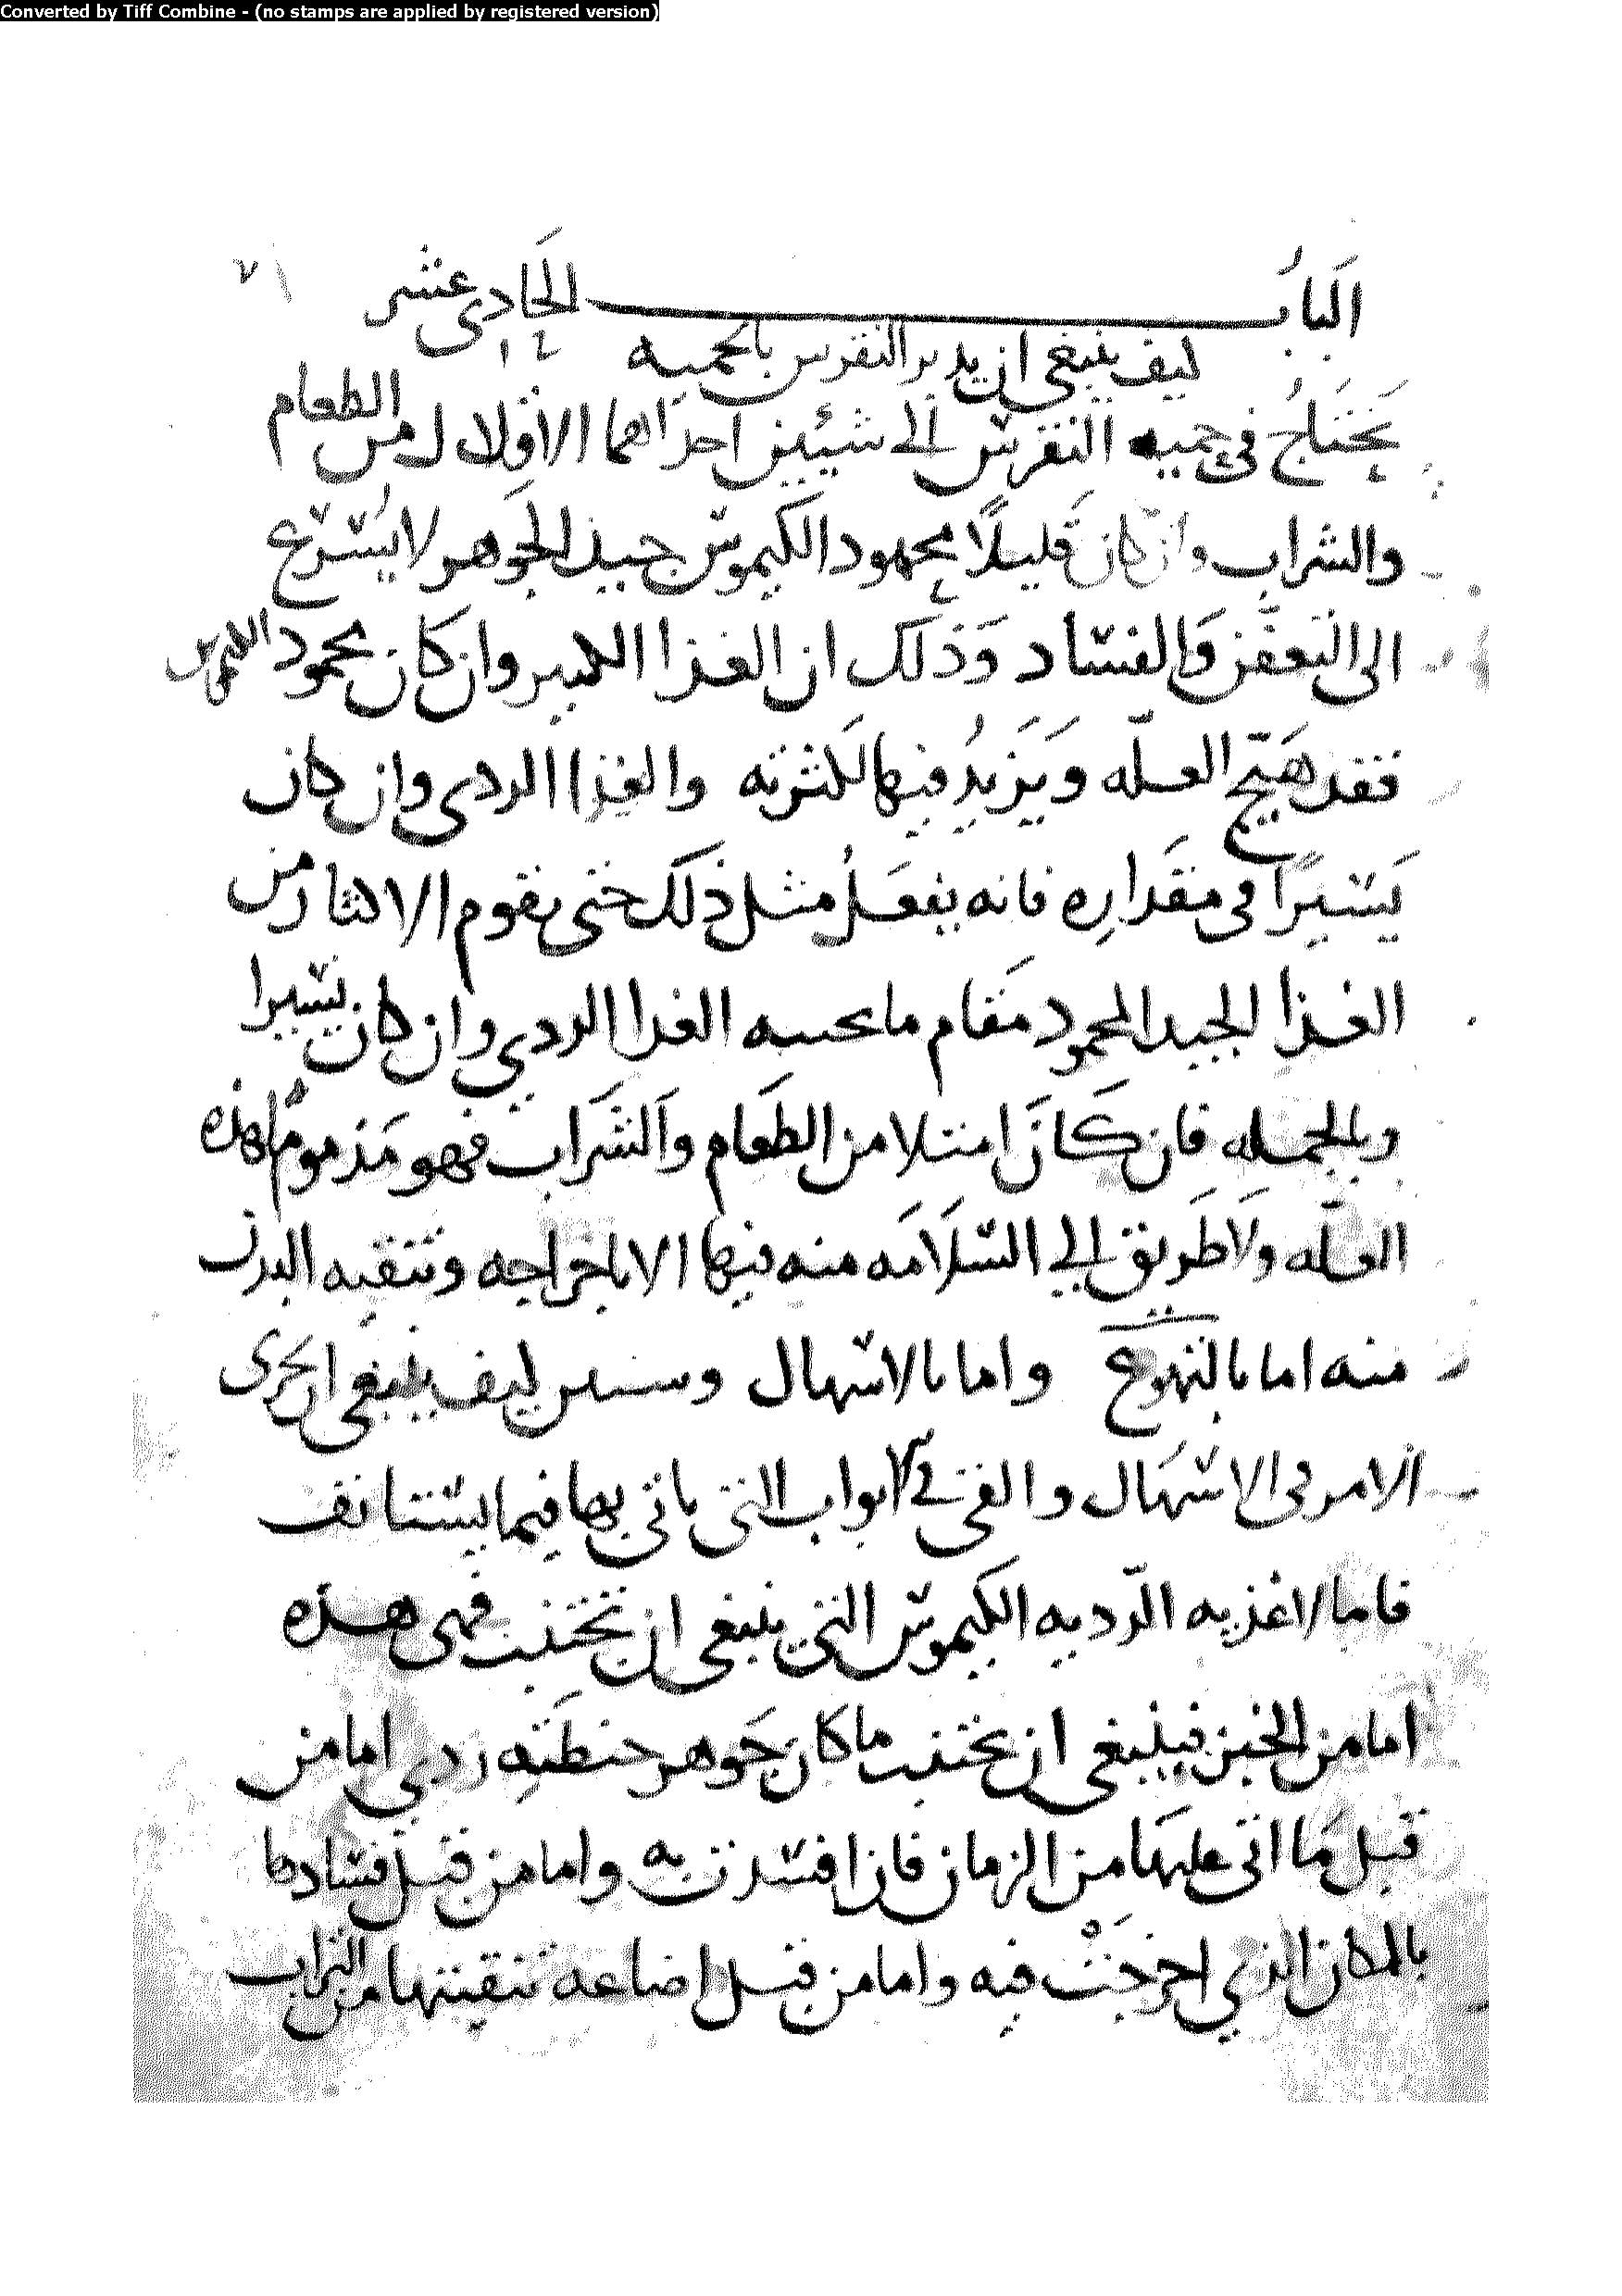 Converted by Tiff Combine - (no stamps are applied by registered version)
الباب الحادى عشر
كيف ينبغى ان يدبر النقرس بالحميه
يحتاج فى حميه النقرس الى شيئين احداهما الاقلال من الطعام
والشراب وان كان قليلًا محمود الكيموس جيد الجوهر لا يسرع
الى التعفن والفساد وذلك ان الغذا الكثير وان كان محمود الكيموس
فقد هيّج العلّه ويزيدُ فيها لكثرته والغذا الردى وان كان
يسيرًا فى مقداره فانه يفعلُ مثل ذلك حتى يقوم الاكثار من
الغذا الجيد المحمود مقام ما يجنيه الغذا الردي وان كان يسيرا
وبالجمله فان كان امتلا من الطعام والشراب فهو مذمومٌ لهذه
العلّه ولا طريق الي السّلامه منه فيها الا باخراجه وتنقيه البدن
منه اما بالتهوع واما بالاسهال وسنبين كيف ينبغى ان يجرى
الامر فى الاسهال والقى فى الابواب التى ياتى بها فيما يستانف
فاما الاغذيه الرّديه الكيموس التى ينبغى ان تجتنب فهى هذه
اما من الخبز فينبغى ان يجتنب ما كان جوهر حنطته ردي اما من
قبل ما اتى عليها من الزمان فان افسدت به واما من قبل فسادها
بالمكان الذي اخرجتْ فيه واما من قبل اضاعه تنقيتها من التراب